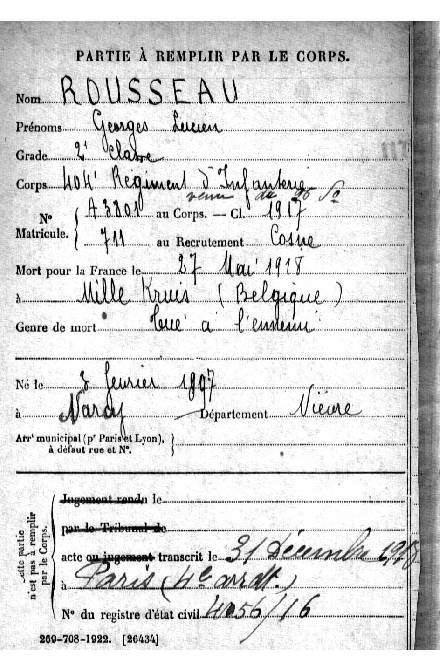 PARTIE À REMPLIR PAR LE CORPS.
Nom ROUSSEAU
Prénoms Georges Lucien
Grade 2e Classe
Corps 404e Régiment d'Infanterie
venu du
No Matricule. A3801 au Corps. — Cl. 1917
711 au Recrutement Cosne
Mort pour la France le 27 Mai 1918
à Mille Kruis (Belgique)
Genre de mort Tué à l'ennemi
Né le 3 février 1897
à Narcy Département Nièvre
Arrt municipal (pr Paris et Lyon), à défaut rue et No.
Cette partie n'est pas à remplir par le Corps.
Jugement rendu le
par le Tribunal de
acte ou jugement transcrit le 31 Décembre 1918
à Paris (4e arrdt.)
No du registre d'état civil 4056/16
269-708-1922. [26434]